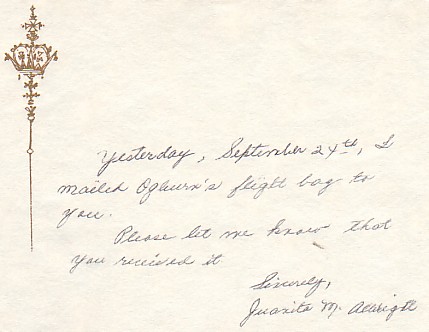 Yesterday, September 24th, I
mailed Ogburn's flight bag to
you.
Please let me know that
you received it
Sincerely,
Juanita M.